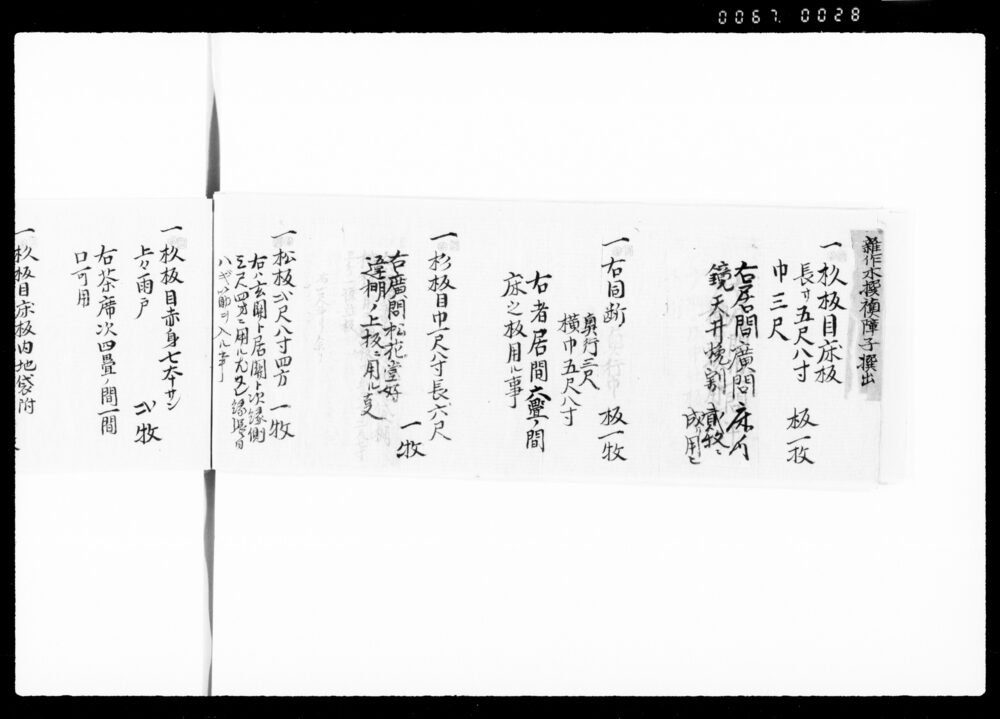 0067. 0028
雑作木撰槙障子撰出
一 杦板目床板
長サ五尺八寸 板一枚
巾三尺
右居間廣間 床ノ
鏡天井挽割 貳牧ニ
成リ用ヒ
一 右同断 板一牧
奥行三尺
横巾五尺八寸
右者居間六疊ノ間
床之板用ル事
一 杉板目巾一尺八寸長六尺
一牧
右廣間松花堂好
違棚ノ上板ニ用ル
一 松板弐尺八寸四方 一牧
右ハ玄関ト居関ト次縁側
三尺四方ニ用ル
一 杦板目赤身七本サン
上々雨戸 弐牧
右茶席次四疊ノ間一間
口可用
一 杦板目床板内地袋附